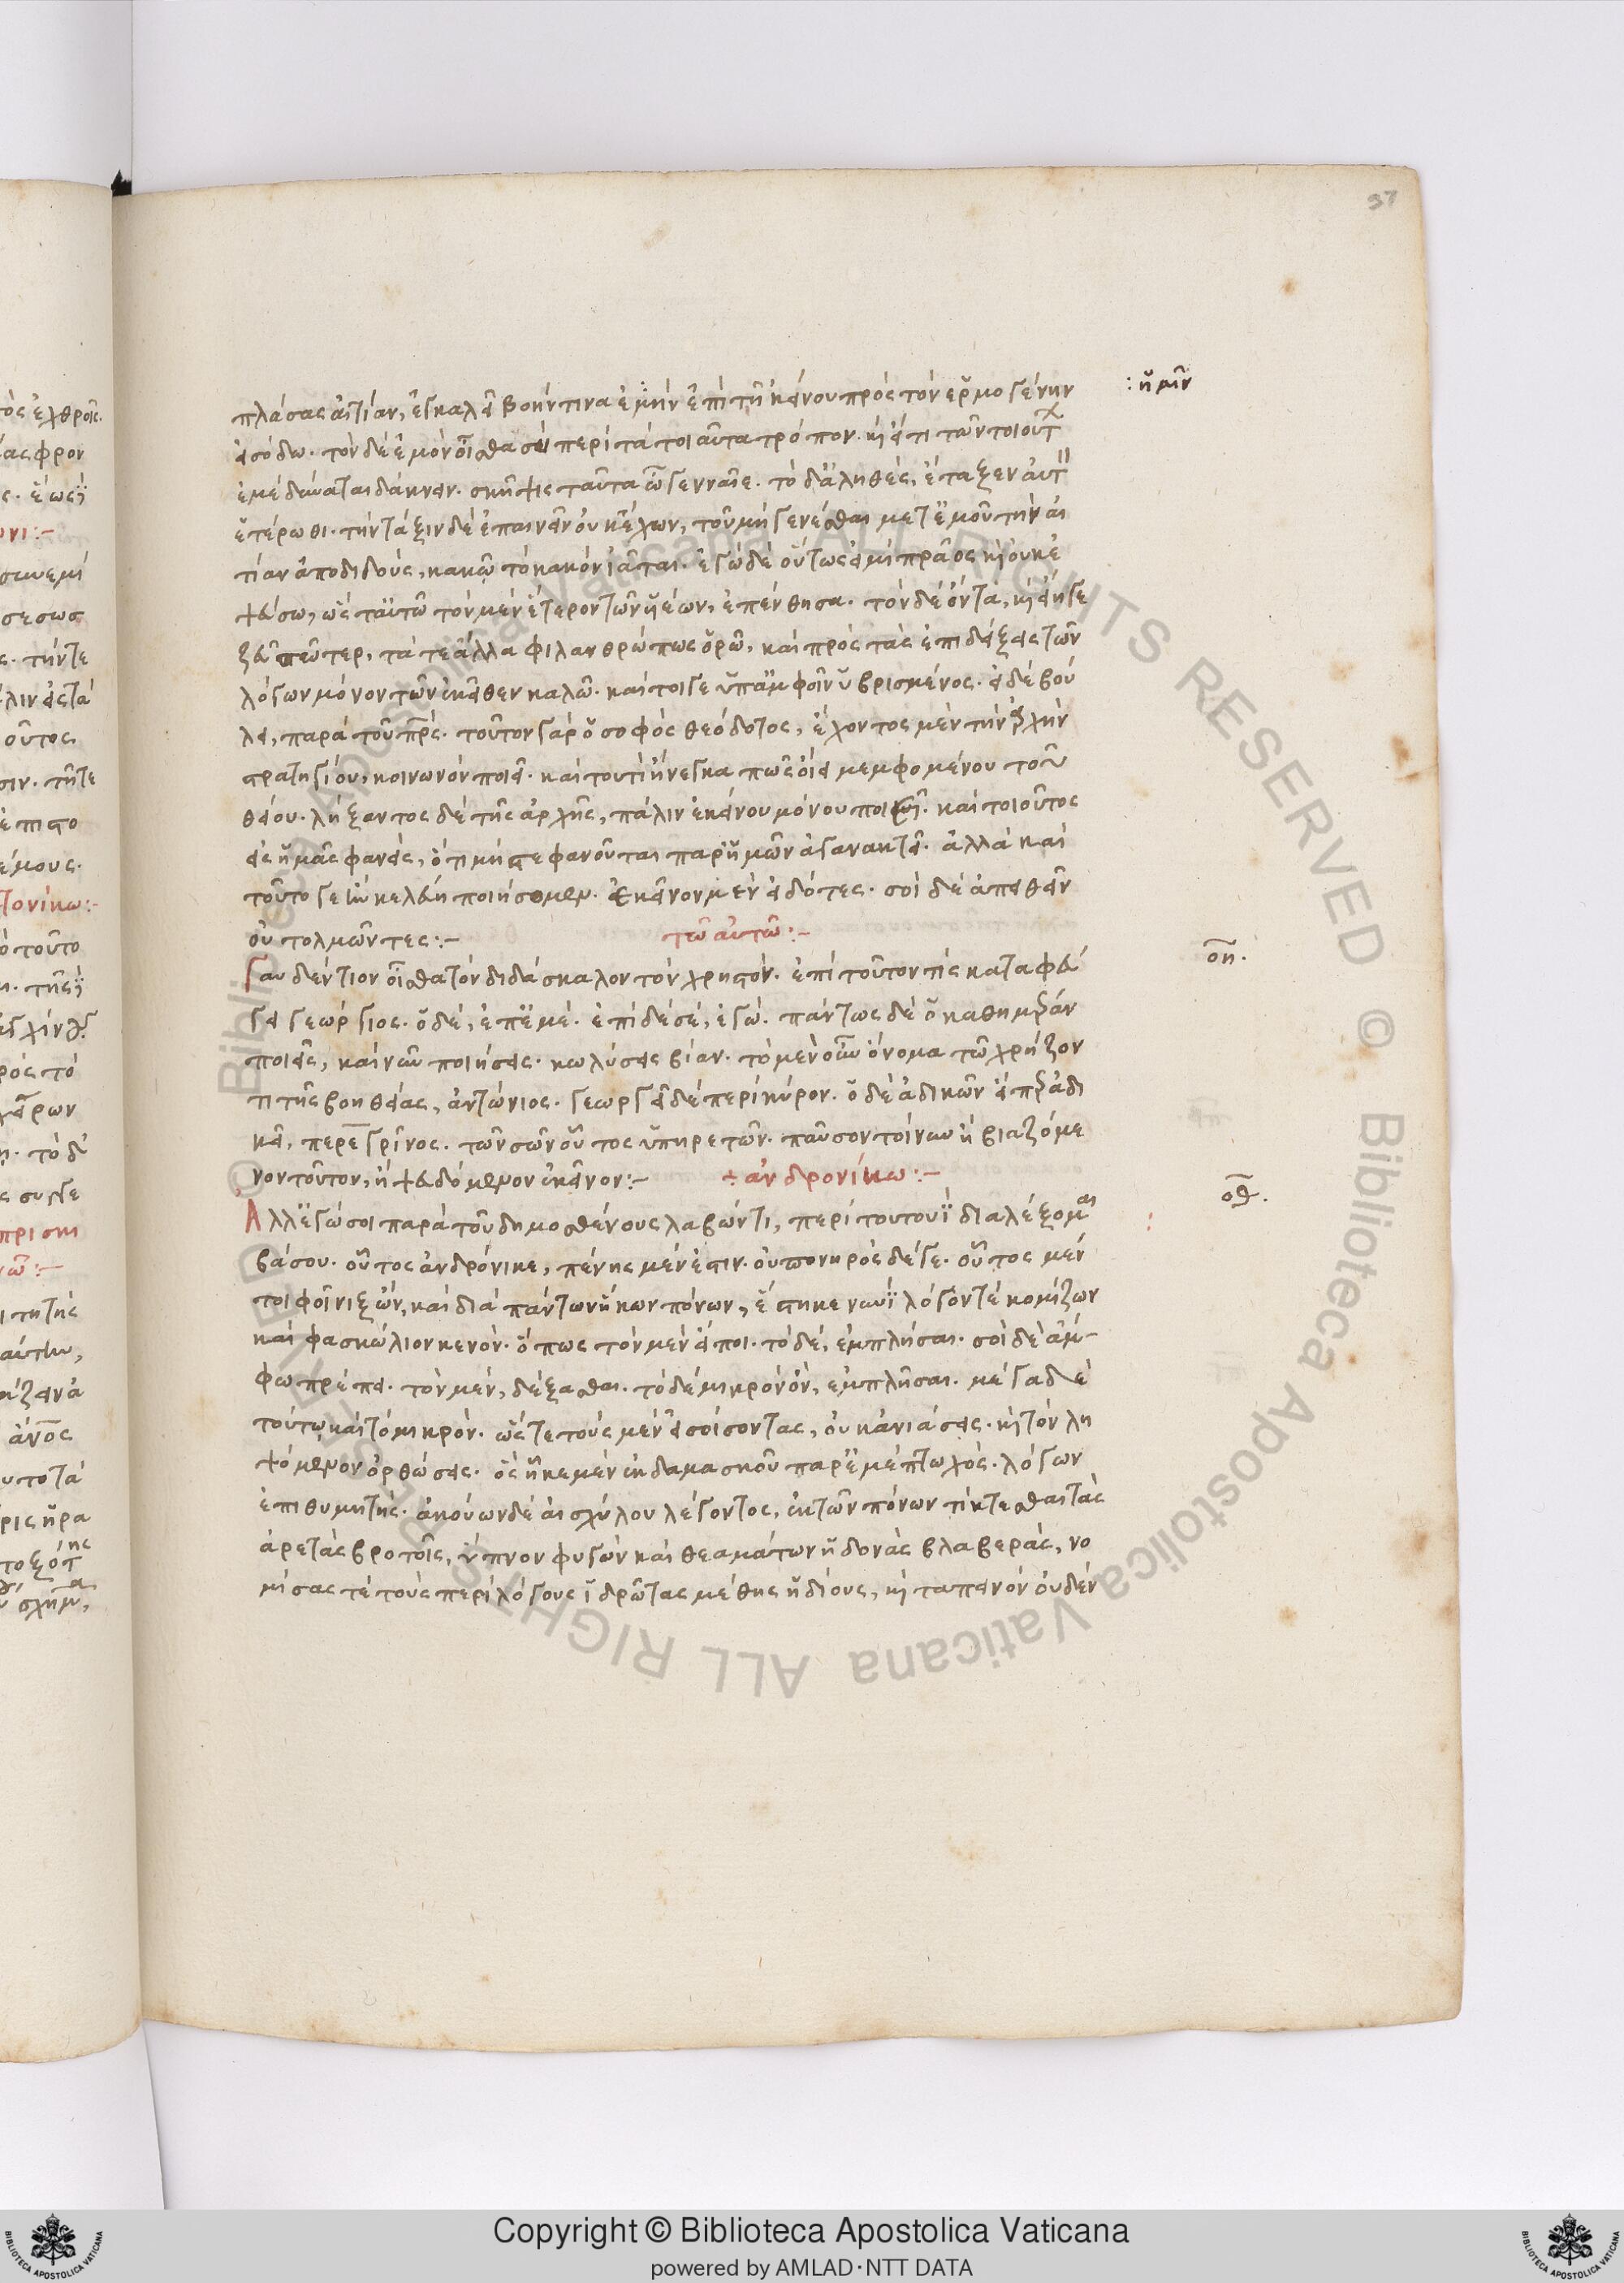 37
πλάσας αἰτίαν, ἐγκαλεῖ βοήν τινα ἐμὴν ἐπὶ τῆ κείνου πρὸς τὸν ἑρμογένην : ἡμῖν
εἰσόδω. τὸν δὲ ἐμὸν οἶσθα σὺ περὶ τὰ τοιαῦτα τρόπον. κ εἴ τι τῶν τοιούτ
ἐμὲ δύναται δάκνειν. σκῆψις ταῦτα ὦ γενναῖε. τὸ δ' ἀληθὲς, ἔταξεν αὐτ
ἑτέρωθι. τὴν τάξιν δὲ ἐπαινεῖν οὐκ ἔχων, τοῦ μὴ γενέσθαι μετ' ἐμοῦ τὴν αἰ
τίαν ἀποδιδοὺς, κακῶ τὸ κακὸν ἰᾶται. ἐγὼ δὲ οὕτως εἰμὶ πρᾶος κ οὐκ ἐ
ψεύσω, ὡς ταὐτῶ τὸν μὲν ἕτερον τῶν υἱέων, ἐπένθησα. τὸν δὲ ὄντα, κ εἴη γε
ζεῦ πάτερ, τά τε ἄλλα φιλανθρώπως ὁρῶ, καὶ πρὸς τὰς ἐπιδείξεις τῶν
λόγων μόνον τῶν ἐκεῖθεν καλῶ. καίτοι γε ὑπ' ἀμφοῖν ὑβρισμένος. εἰ δὲ βού
λει, παρὰ τοῦ πρς. τοῦτον γὰρ ὁ σοφὸς θεόδοτος, ἔχοντος μὲν τὴν ἀρχὴν
στρατηγίου, κοινωνὸν ποιεῖ. καὶ τουτὶ ἤνεγκα πῶς οἴει μεμφομένου τοῦ
θείου. λήξαντος δὲ τῆς ἀρχῆς, πάλιν ἐκείνου μόνου ποιεῖ. καὶ τοιοῦτος
εἰς ἡμᾶς φανεὶς, ὅτι μὴ στεφανοῦται παρ' ἡμῶν ἀγανακτεῖ. ἀλλὰ καὶ
τοῦτο γε ἢν κελεύη ποιήσομεν. ἐκεῖνον μὲν εἰδότες. σοὶ δὲ ἀπειθεῖν
οὐ τολμῶντες :– τῶ αὐτῶ :–
οη.
Γαυδέντιον οἶσθα τὸν διδάσκαλον τὸν χρηστόν. ἐπὶ τοῦτον τίς καταφεύ
γει γεώργιος. ὁ δὲ, ἐπ' ἐμέ. ἐπὶ δὲ σὲ, ἐγώ. πάντως δὲ ὃ καθημέραν
ποιεῖς, καὶ νῦν ποιήσεις. κωλύσεις βίαν. τὸ μὲν οὖν ὄνομα τῶ χρήζον
τι τῆς βοηθείας, ἀντώνιος. γεωργεῖ δὲ περὶ κύρον. ὁ δὲ ἀδικῶν εἴπερ ἀδι
κεῖ, περεγρῖνος. τῶν σῶν οὗτος ὑπηρετῶν. παῦσον τοίνυν ἢ βιαζόμε
νον τοῦτον, ἢ ψευδόμενον ἐκεῖνον :– + ἀνδρονίκω :–
οθ.
Ἀλλ' ἐγώ σοι παρὰ τοῦ δημοσθένους λαβών τι, περὶ τουτουῒ διαλέξομαι
βάσου. οὗτος ἀνδρόνικε, πένης μέν ἐστιν. οὐ πονηρὸς δέ γε. οὗτος μέν
τοι φοῖνιξ ὢν, καὶ διὰ πάντων ἥκων πόνων, ἕστηκε νυνῒ λόγόν τέ κομίζων
καὶ φασκώλιον κενόν. ὅπως τὸν μὲν εἴποι. τὸ δὲ, ἐμπλήσαι. σοὶ δὲ ἄμ–
φω πρέπει. τὸν μὲν, δέξασθαι. τὸ δὲ μικρὸν ὂν, ἐμπλῆσαι. μέγα δὲ
τούτω καὶ τὸ μικρόν. ὥστε τοὺς μὲν εἰσοίσοντας, οὐκ ἀνιάσεις. κ τὸν λη
ψόμενον ὀρθώσεις. ὃς ἧκε μὲν ἐκ δαμασκοῦ παρ' ἐμὲ πτωχὸς. λόγων
ἐπιθυμητής. ἀκούων δὲ αἰσχύλου λέγοντος, ἐκ τῶν πόνων τίκτεσθαι τὰς
ἀρετὰς βροτοῖς, ὕπνον φυγὼν καὶ θεαμάτων ἡδονὰς βλαβερὰς, νο
μίσας τὲ τοὺς περὶ λόγους ἱδρῶτας μέθης ἡδίους, κ ταπεινὸν οὐδὲν
Copyright © Biblioteca Apostolica Vaticana
powered by AMLAD·NTT DATA